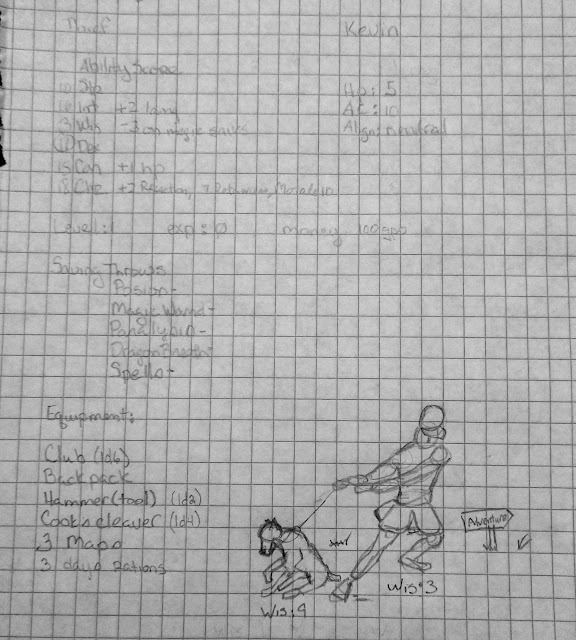 Thief
Kevin
Ability Scores
Str
Int +2 lang
3 Wis -3 on magic saves
Dex
15 Con +1 hp
18 Cha +2 Reaction, 7 Retainers, Morale 10
Hp: 5
AC: 10
Align: neutral
Level: 1 exp: 0 money 100gp
Saving Throws
Posion-
Magic Wand-
Parallysin-
Dragon Breath-
Spells-
Equipment:
Club (1d6)
Backpack
Hammer(tool) (1d2)
Cook's cleaver (1d4)
3 Maps
3 days Rations
Adventure
Wis: 9
Wis: 3